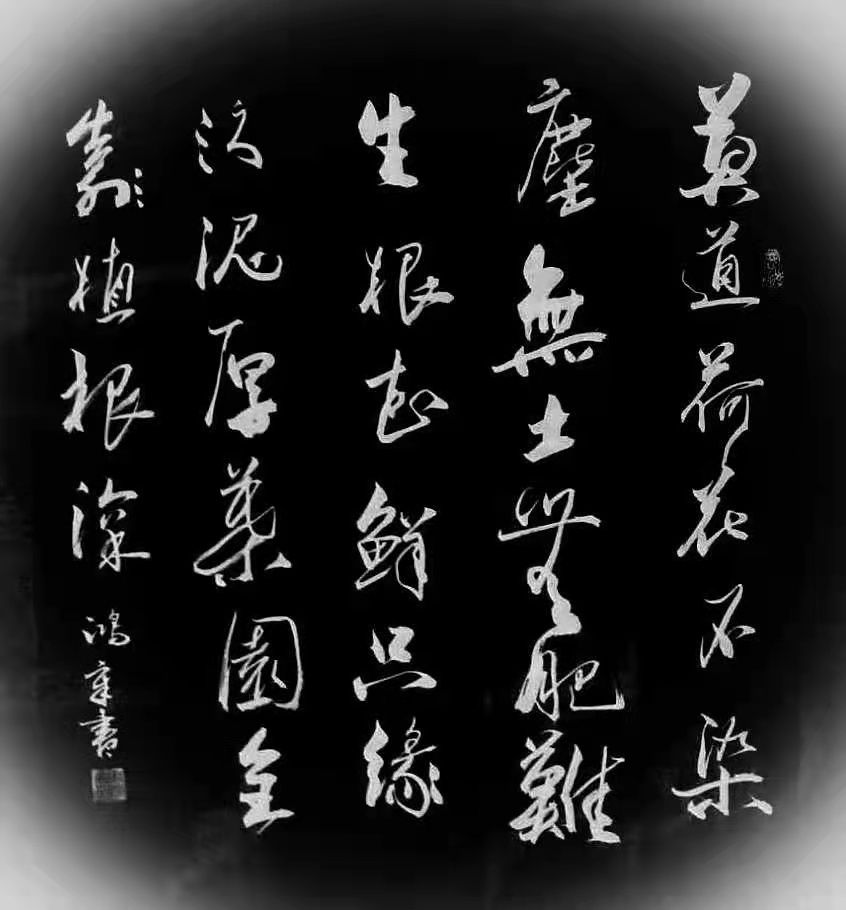 莫道荷花不染
塵無土無肥難
生根花鮮只緣
污泥厚葉園全
靠植根深
鴻章書